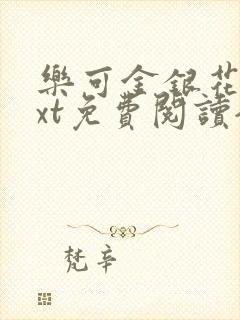 樂可金銀花
xt免費閱讀
梵辛